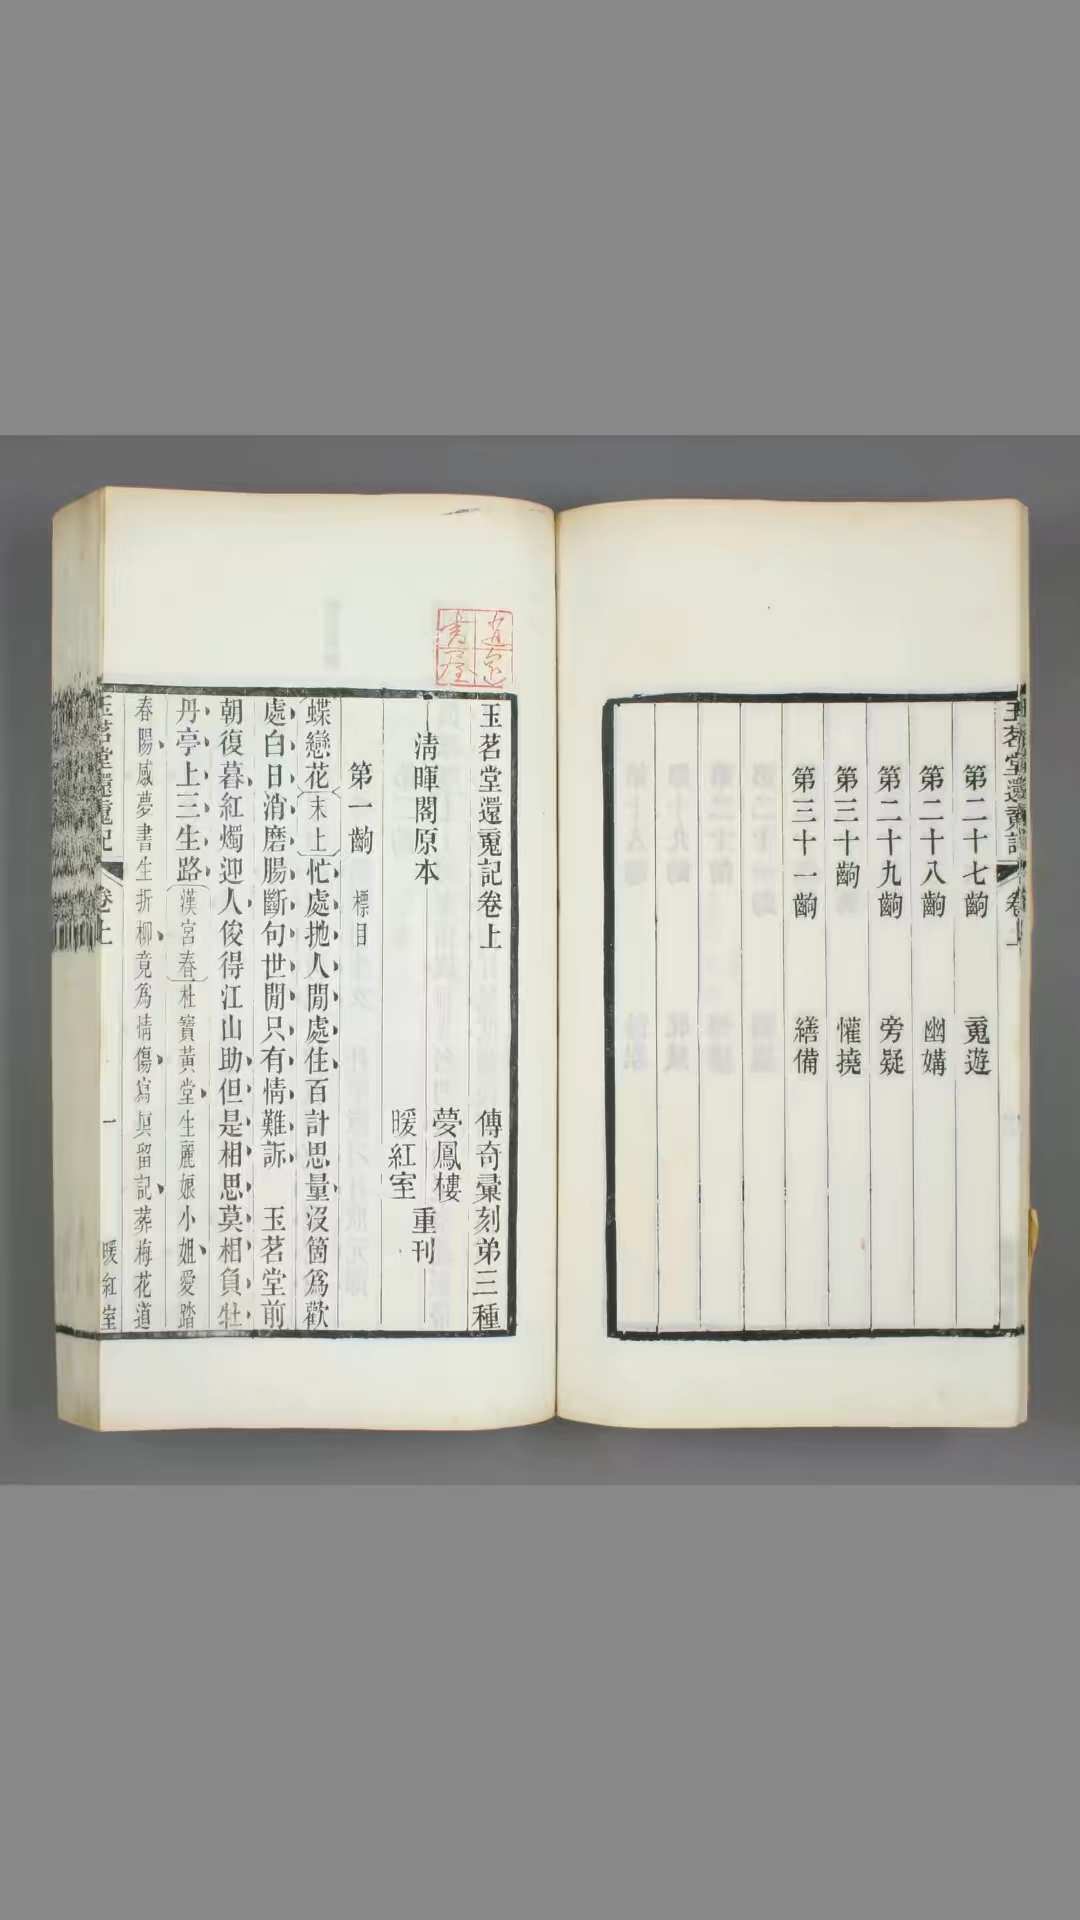 第二十七齣　䰟遊
第二十八齣　幽媾
第二十九齣　旁疑
第三十齣　懽撓
第三十一齣　繕備
玉茗堂還䰟記卷上　傳奇彙刻弟三種
清暉閣原本　夢鳳樓
暖紅室　重刊
第一齣　標目
蝶戀花〔末上〕忙處抛人閒處住百計思量沒箇爲歡
處白日消磨腸斷句世閒只有情難訴　玉茗堂前
朝復暮紅燭迎人俊得江山助但是相思莫相負牡
丹亭上三生路〔漢宮春〕杜寶黃堂生麗娘小姐愛踏
春陽感夢書生折柳竟爲情傷寫眞留記葬梅花道
玉茗堂還䰟記　卷上　一　暖紅室